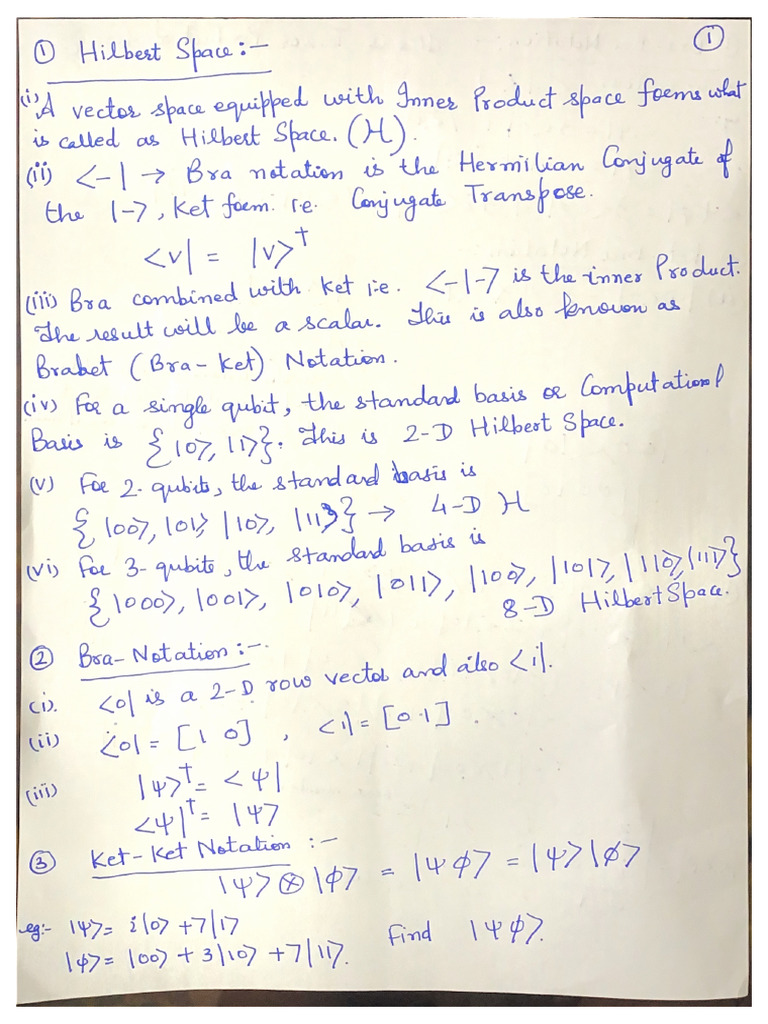 ①
① Hilbert Space :-
(i) A vector space equipped with Inner Product space forms what
is called as Hilbert Space. (H).
(ii) <-| → Bra notation is the Hermilian Conjugate of
the |->, Ket form. i.e. Conjugate Transpose.
<v| = |v>†
(iii) Bra combined with Ket i.e. <-|-> is the inner Product.
The result will be a scalar. This is also known as
Braket (Bra-Ket) Notation.
(iv) For a single qubit, the standard basis or Computational
Basis is {|0>, |1>}. This is 2-D Hilbert Space.
(v) For 2-qubits, the standard basis is
{|00>, |01>, |10>, |11>} → 4-D H
(vi) For 3-qubits, the standard basis is
{|000>, |001>, |010>, |011>, |100>, |101>, |110>, |111>}
8-D Hilbert Space.
② Bra-Notation :-
(i). <0| is a 2-D row vector and also <1|.
(ii) <0| = [1 0] , <1| = [0 1] .
(iii) |ψ>† = <ψ|
<ψ|† = |ψ>
③ Ket-Ket Notation :-
|ψ> ⊗ |φ> = |ψφ> = |ψ>|φ>
eg:- |ψ> = i|0> + 7|1>
|φ> = |00> + 3|10> + 7|11>. Find |ψφ>.